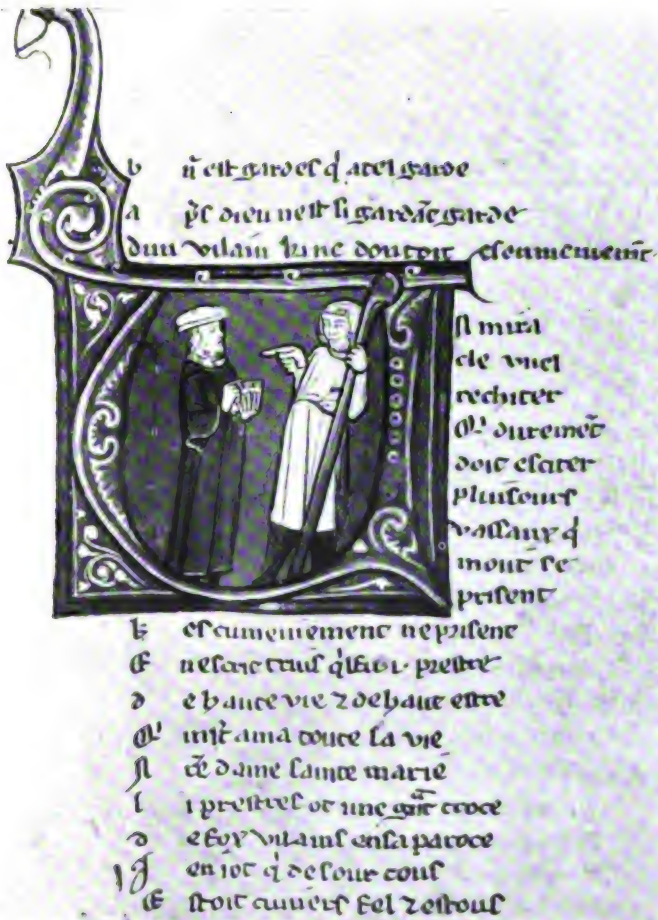 b ñ est gardes q̓ atel garde
a p̃s dieu nest si gardãt garde
dun vilain ki ne doutoit escumeniemẽt
N mira
cle vuel
rechiter
Q' duremẽt
doit esciter
pluisours
vassaux q̓
mout se
prisent
k escumeniement ne prisent
E nescrit truis q̓l fu .i. prestre
d e haute vie ⁊ de haut estre
Q' ml̃t ama toute sa vie
N r̃e dame sainte marie
l i prestres ot une gᵃnt troce
d e fox vilains en sa paroce
en i ot q̓ desour tous
E stoit cuivers fel ⁊ estous